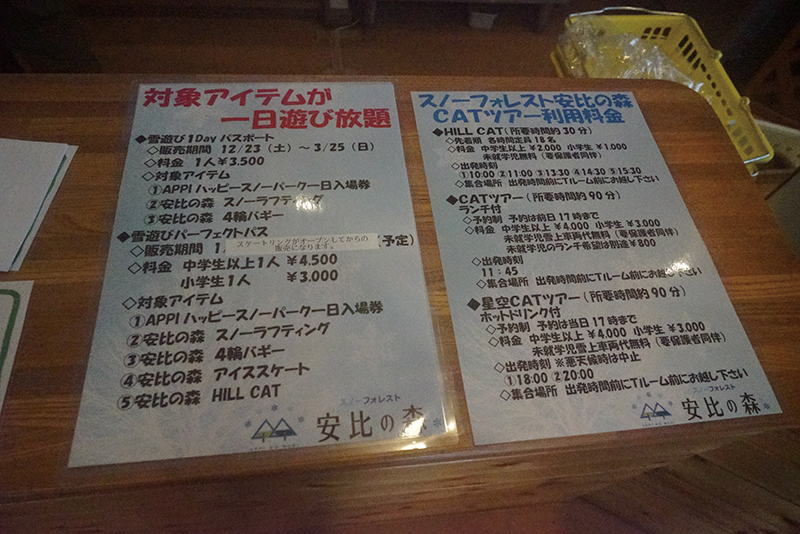 対象アイテムが
一日遊び放題
◆雪遊び1Day パスポート
◇販売期間 12/23(土)〜3/25(日)
◇料金 1人¥3.500
◇対象アイテム
①APPIハッピースノーパーク一日入場券
②安比の森 スノーラフティング
③安比の森 4輪バギー
◆雪遊びパーフェクトパス
◇販売期間 1
スケートリンクがオープンしてからの
販売になります。
(予定)
◇料金 中学生以上1人 ¥4.500
小学生1人 ¥3.000
◇対象アイテム
①APPIハッピースノーパーク一日入場券
②安比の森 スノーラフティング
③安比の森 4輪バギー
④安比の森 アイススケート
⑤安比の森 HILL CAT
スノーフォレスト
安比の森
スノーフォレスト安比の森
CATツアー利用料金
◆HILL CAT(所要時間約30分)
◇先着順 各時間定員18名
◇料金 中学生以上 ¥2,000 小学生 ¥1,000
未就学児無料(要保護者同伴)
◇出発時刻
①10:00 ②11:00 ③13:30 ④14:30 ⑤15:30
◇集合場所 出発時間前にTルーム前にお越し下さい
◆CATツアー(所要時間約90分)
ランチ付
◇予約制 予約は前日17時まで
◇料金 中学生以上 ¥4,000 小学生 ¥3,000
未就学児雪上車両代無料(要保護者同伴)
未就学児のランチ希望は別途¥800
◇出発時刻
11:45
◇集合場所 出発時間前にTルーム前にお越し下さい
◆星空CATツアー(所要時間約90分)
ホットドリンク付
◇予約制 予約は当日17時まで
◇料金 中学生以上 ¥4,000 小学生 ¥3,000
未就学児雪上車両代無料(要保護者同伴)
◇出発時刻 ※悪天候時は中止
①18:00 ②20:00
◇集合場所 出発時間前にTルーム前にお越し下さい
スノーフォレスト
安比の森